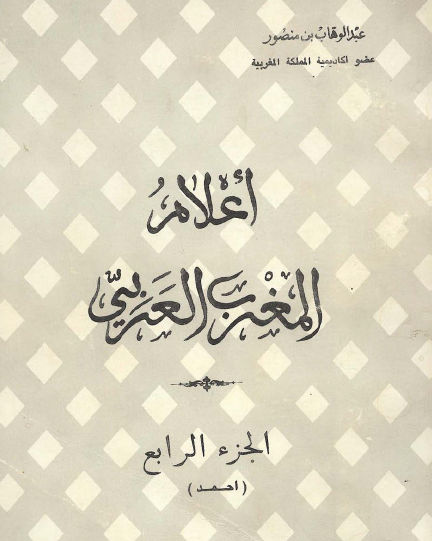 عبد الوهاب بن منصور
عضو اكاديمية المملكة المغربية
أعْلامُ
المغْرب العَربيّ
الجزء الرابع
(احمد)